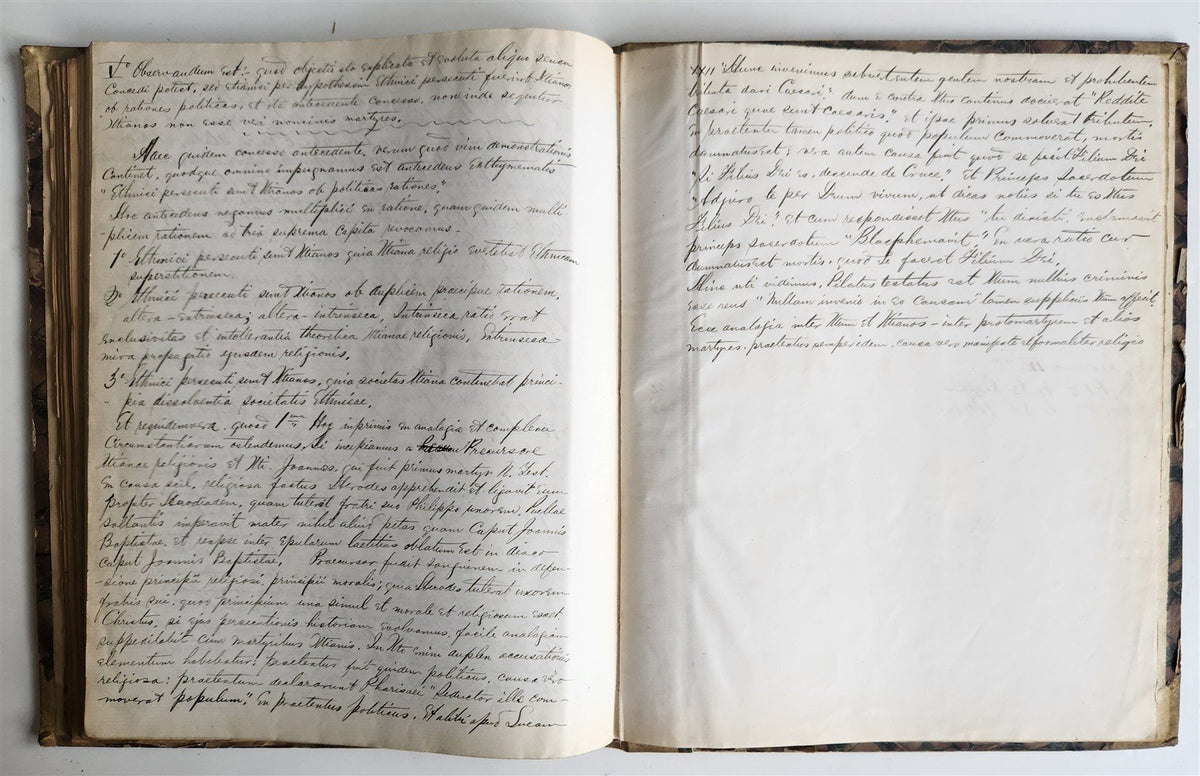 V° Observandum est: quod objectis ita explicata et evoluta aliquo sensu
concedi potest, sed etiamsi per hypothesim Ethnici persecuti fuerint Xtianos
ob rationes politicas, et ita antecedente concesso, non inde sequitur
Xtianos non esse veri nominis martyres.
Haec quidem concesso antecedente, verum quod vim demonstrationis
continet, quodque omnino impugnamus est antecedens Enthymematis
"Ethnici persecuti sunt Xtianos ob politicas rationes"
Hoc antecedens negamus multiplici ex ratione, quam quidem multi-
plicem rationem ad tria suprema capita revocamus.-
1° Ethnici persecuti sunt Xtianos quia Xtiana religio evertebat Ethnicam
superstitionem.
2° Ethnici persecuti sunt Xtianos ob duplicem praecipue rationem,
altera - extrinseca; altera - intrinseca. Intrinseca ratio erat
exclusivitas et intolerantia theoretica Xtianae religionis, Extrinseca
mira propagatio ejusdem religionis.
3° Ethnici persecuti sunt Xtianos, quia societas Xtiana continebat princi-
- pia dissolventia societatis Ethnicae.
Et requidemvera, quoad 1um Hoc inprimis ex analogia et complexu
circumstantiarum ostendemus. Si incipiamus a Precursore
Xtianae religionis et Xti. Joannes, qui fuit primus martyr N. Test.
ex causa scil. religiosa factus Herodes apprehendit et ligavit eum
propter Herodiadem, quam tulerat fratri suo Philippo uxorem. Puellae
saltantis imperavit mater nihil aliud petas quam Caput Joannis
Baptistae, et reapse inter epularum laetitias oblatum est in disco
caput Joannis Baptistae. Praecursor fudit sanguinem in defen-
-sione principii religiosi, principii moralis; quia Herodes tulerat uxorem
fratris sui, quod principium una simul et morale et religiosum esset.
Christus, si ejus persecutionis historiam evolvamus, facile analogiam
suppeditabit cum martyribus Xtianis. In Xto enim duplex accusationis
elementum habebatur: praetextus fuit quidem politicus, causa vero
religiosa: praetextum declararunt Pharisaei "Seductor ille com-
moverat populum". En praetextus politicus. Et alibi apud Lucam
XXIII "Hunc invenimus subvertentem gentem nostram et prohibentem
tributa dari Caesari". dum e contra Xtus continuo docuerat "Reddite
Caesari quae sunt Caesaris", et ipse primus solverat tributum.
En praetextu tamen politico quod populum commoverat, mortis
damnatus est; vera autem causa fuit quod se fecit Filium Dei
"Si Filius Dei es, descende de Cruce," Et Princeps Sacerdotum
"Adjuro te per Deum vivum, ut dicas nobis si tu es Xtus
Filius Dei", et cum respondisset Xtus "tu dixisti" exclamavit
princeps sacerdotum "Blasphemavit." En vera ratio cur
damnatus est mortis, quod se faceret Filium Dei.
uti vidimus, Pilatus testatus est Xtum nullius criminis
esse reus "Nullam invenio in eo causam" tamen suppliciis Xtum affecit.
Ecce analogia inter Xtum et Xtianos - inter protomartyrem et alios
martyres, praetextus semper idem, causa vero manifeste et formaliter religio